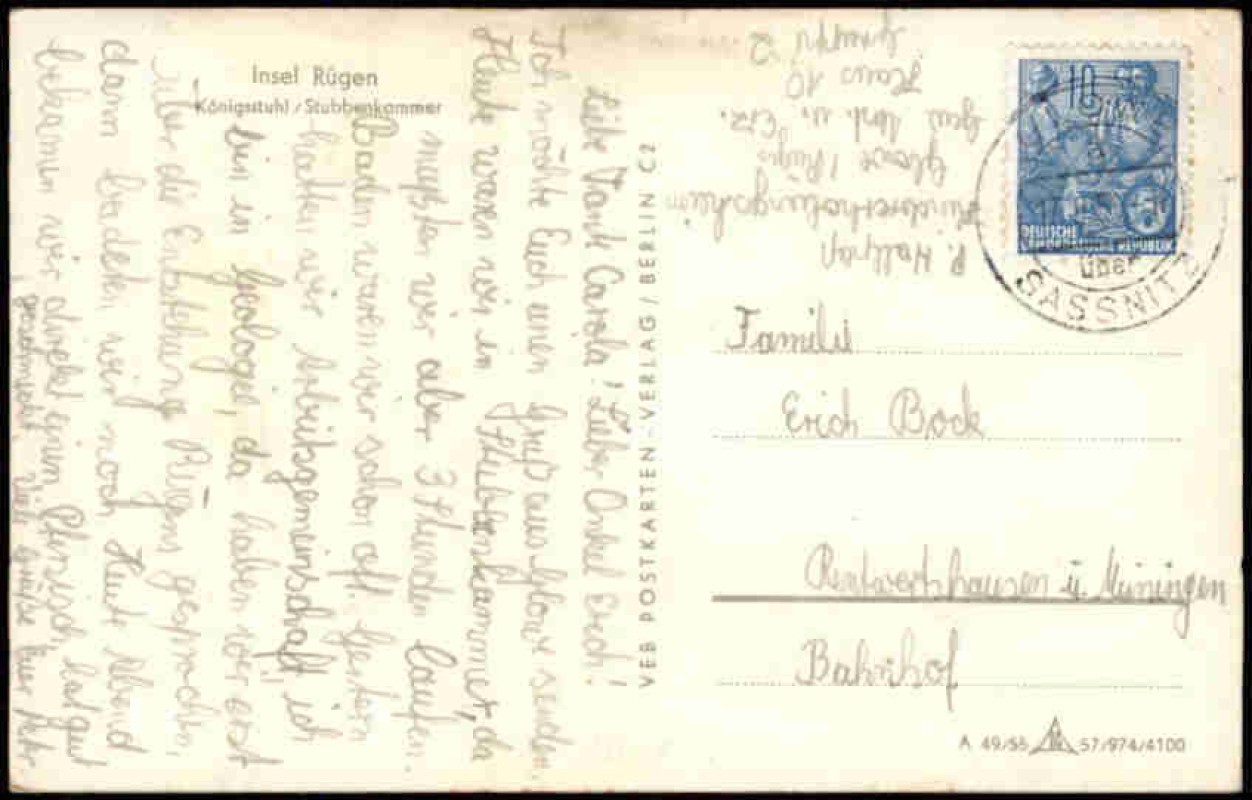 Insel Rügen
Königsstuhl / Stubbenkammer
Liebe Tante Carola! Lieber Onkel Erich!
Ich möchte Euch einen Gruß aus Glowe senden.
Heute waren wir in Stubbenkammer, da
mußten wir aber 3 Stunden laufen.
Baden waren wir schon oft. Gestern
hatten wir Arbeitsgemeinschaft, ich
bin in Geologie, da haben wir erst
über die Entstehung Rügens gesprochen,
dann badeten wir noch. Heute Abend
bekamen wir direkt einen hat gut
geschmeckt. Viele Grüße Euer
VEB POSTKARTEN-VERLAG / BERLIN C2
P.
Kindererholungsheim
Glowe / Rügen
u. Erz.
Haus 10
Gruppe 2
10
DEUTSCHE
DEMOKRATISCHE REPUBLIK
über
SASSNITZ
Familie
Erich Bock
Rentwertshausen ü. Meiningen
Bahnhof
A 49/56 57/974/4100